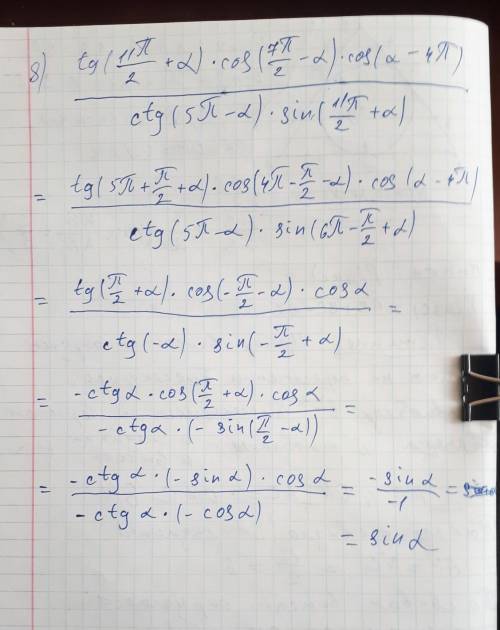 8) tg(11π/2 + α) · cos(7π/2 − α) · cos(α − 4π)
ctg(5π − α) · sin(11π/2 + α)
= tg(5π + π/2 + α) · cos(4π − π/2 − α) · cos(α − 4π)
ctg(5π − α) · sin(6π − π/2 + α)
= tg(π/2 + α) · cos(−π/2 − α) · cos α =
ctg(−α) · sin(−π/2 + α)
= −ctg α · cos(π/2 + α) · cos α =
−ctg α · (− sin(π/2 − α))
= −ctg α · (− sin α) · cos α = −sin α =
−ctg α · (− cos α) −1
= sin α